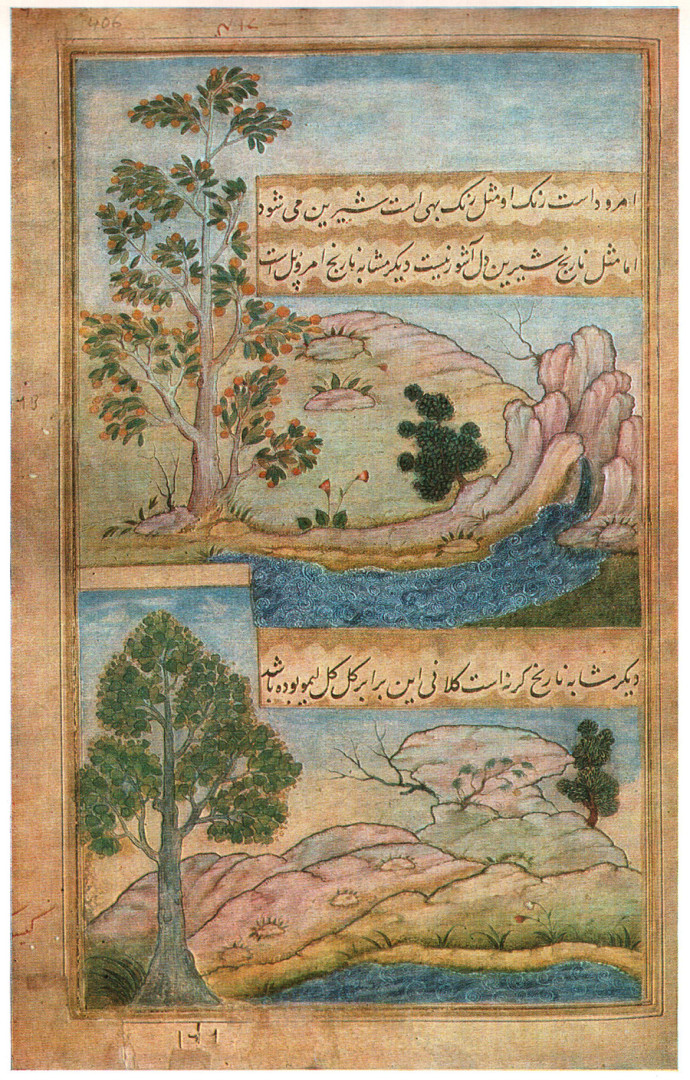 406
امرود است رنک او مثل رنک بهی است شیرین می شود
اما مثل نارنج شیرین دل آشور نیست دیگر مشابه نارنج امرد پل است
دیگر مشابه نارنج کرنه است کلانی این برابر کل کل لیمو بوده باشد